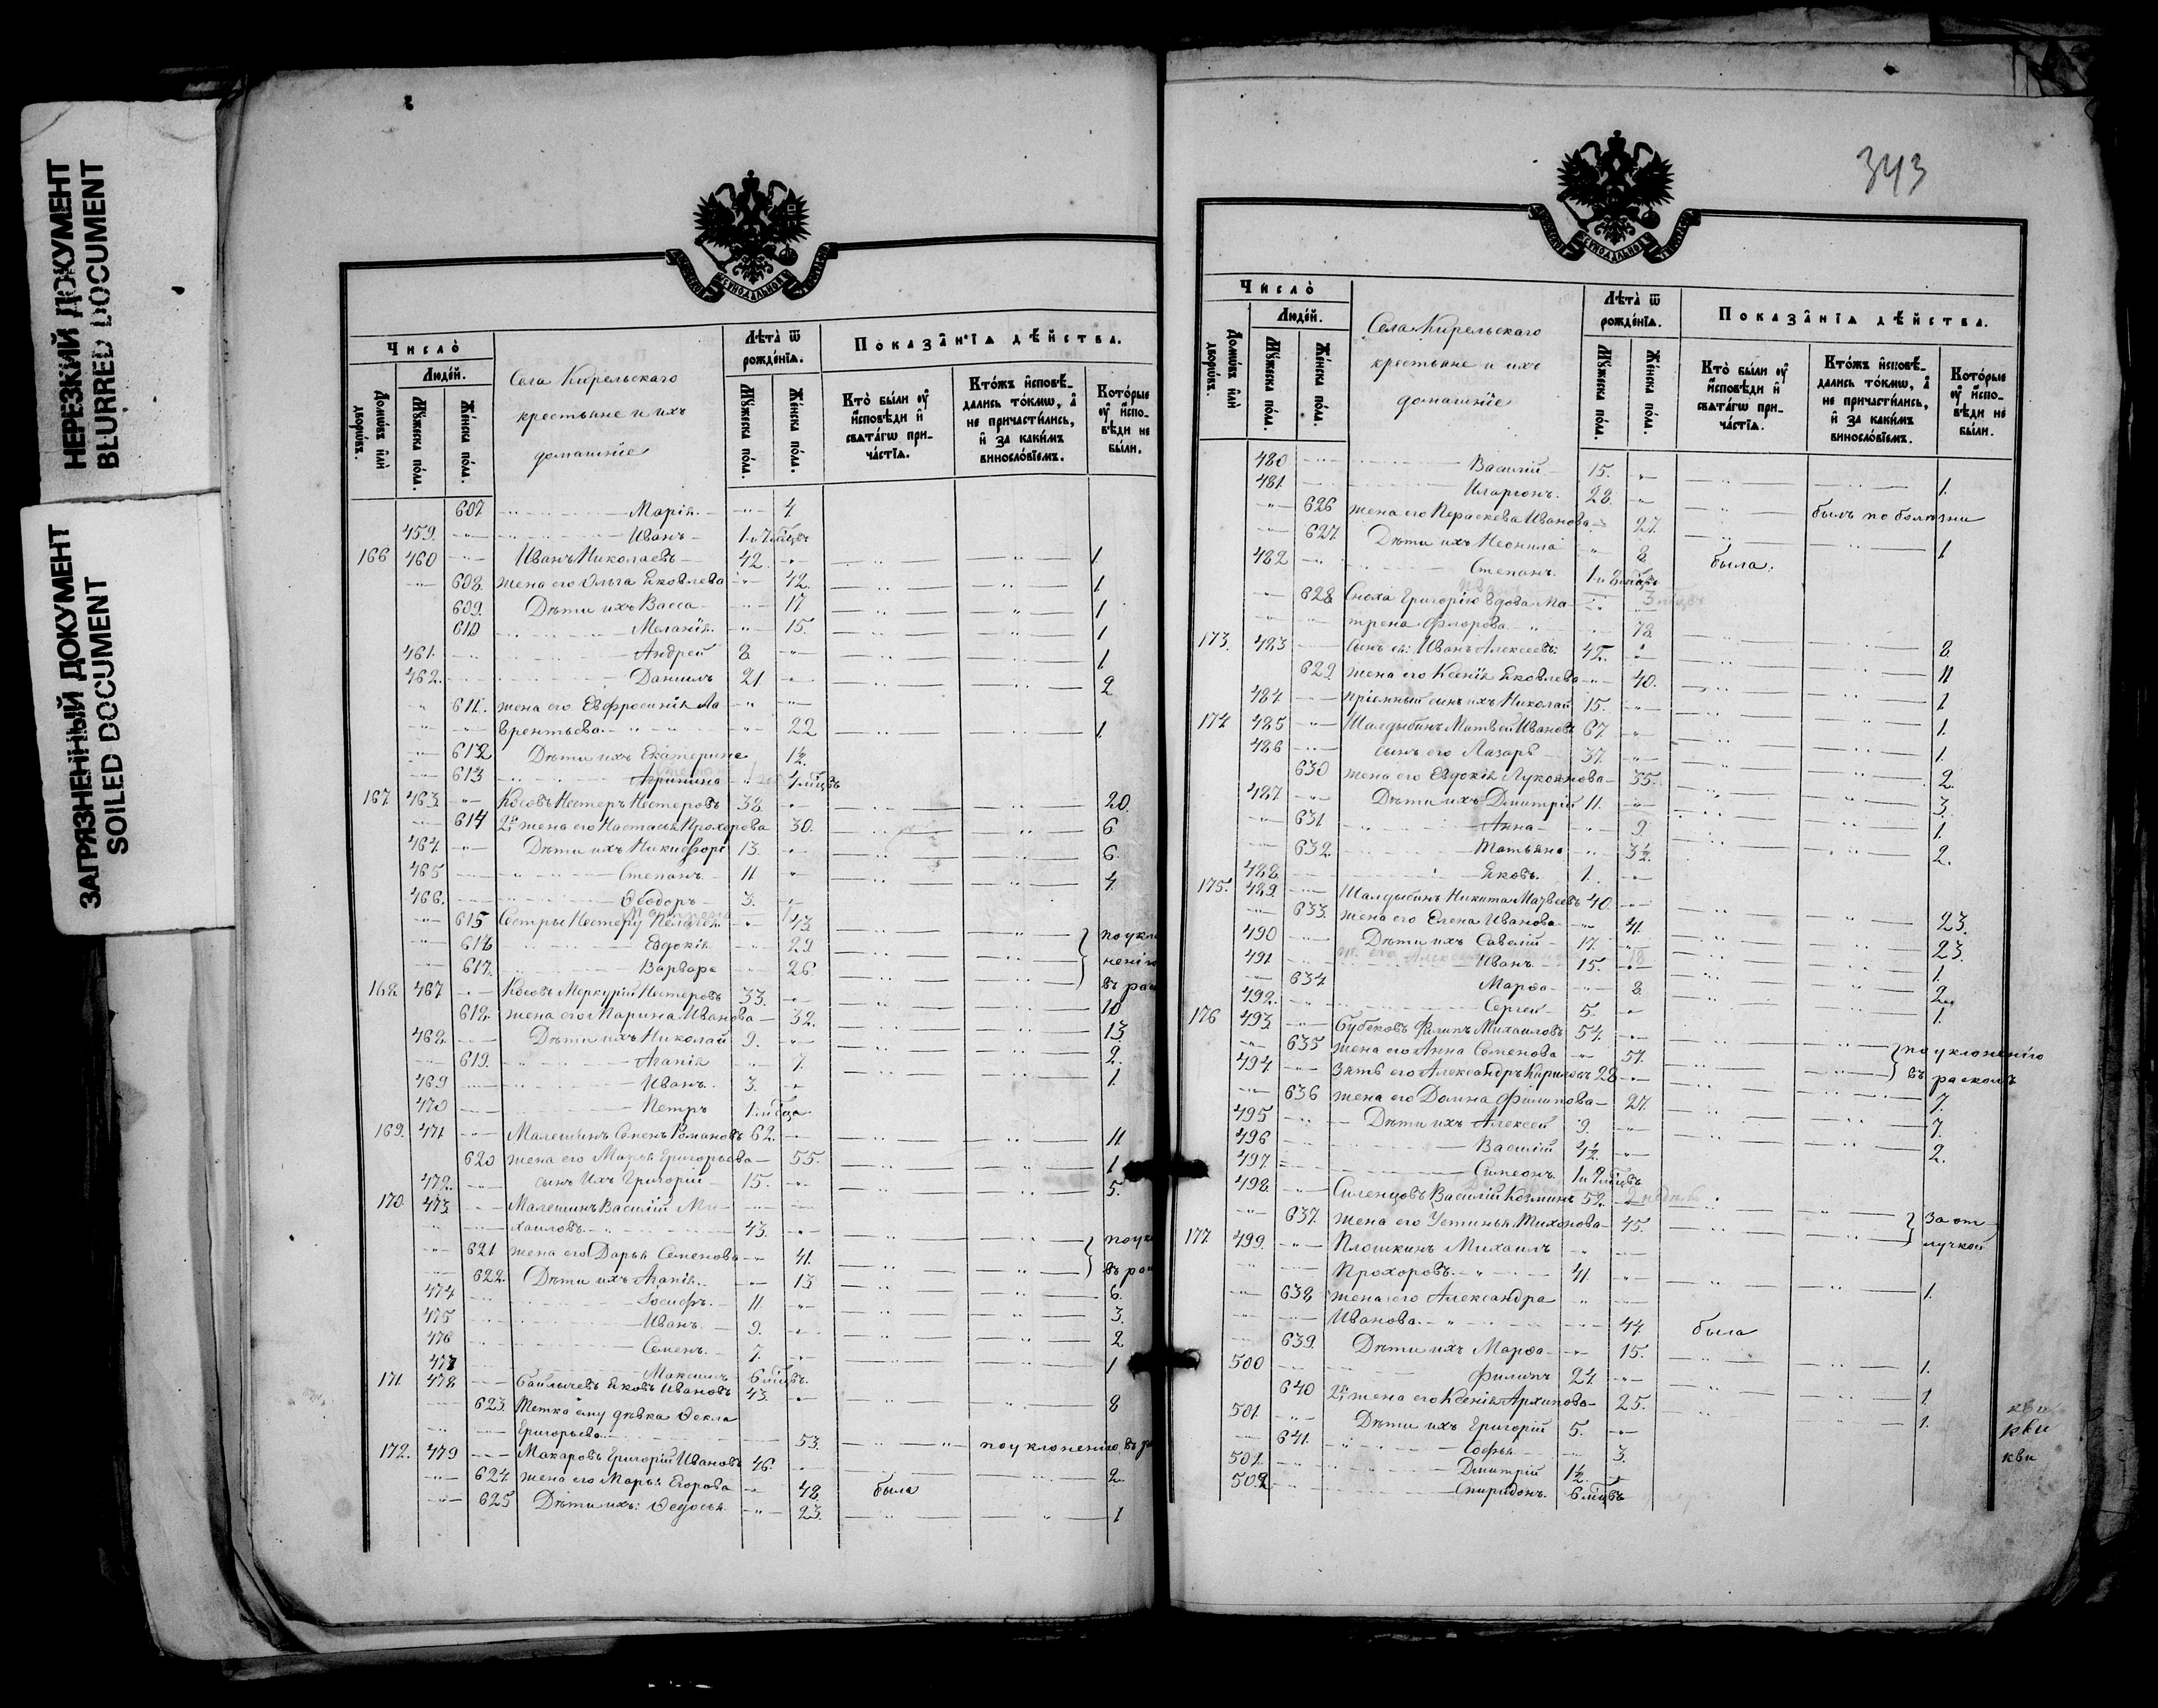 НЕРЕЗКИЙ ДОКУМЕНТ
BLURRED DOCUMENT
ЗАГРЯЗНЕННЫЙ ДОКУМЕНТ
SOILED DOCUMENT
Число̀
Людей.
Домѡвъ или дворѡвъ.
Мꙋжеска пола.
Женска пола.
Села Кирельскаго
крестьяне и ихъ
домашніе
Лѣта ѿ рожденїѧ.
Мꙋжеска пола.
Женска пола.
Показанїѧ дѣйства.
Кто были оу исповѣди и свѧтагѡ причастїѧ.
Ктожъ исповѣдались токмѡ, а не причастились, и за какимъ винословїемъ.
Которые оу исповѣди не были.
607. Марія 4.
459. Иванъ 1. и 7 мѣцъ
166 460 Иванъ Николаевъ 42. 1.
608. жена его Ольга Яковлева 42. 1
609. Дѣти ихъ Васса 17 1
610 Меланія 15. 1
461. Андрей 8. 1
462. Даніилъ 21 2
611. жена его Евфросинія Ла
врентьева 22 1.
612 Дѣти ихъ Екатерина 1½.
613 Агрипина 4 мѣцъ
167 463. Косовъ Нестеръ Нестеровъ 38. 20.
614 2я жена его Настасья Прохорова 30. 6
464. Дѣти ихъ Никифоръ 13. 6.
465 Степанъ 11 4
466. Ѳеодоръ 3.
615 Сестры Нестеру Пелагія 43. по укло
616 Евдокія 29 ненію
617. Варвара 26. въ рас
168 467 Косовъ Меркурій Нестеровъ 33. 10
618. жена его Марина Иванова 32. 13
468. Дѣти ихъ Николай 9. 2.
619. Агапія 7. 1.
469 Иванъ. 3.
470 Петръ 1.
169. 471 Малешинъ Семенъ Романовъ 62. 11
620 жена его Марья Григорьева 55. 1
472. сынъ ихъ Григорій 15. 5.
170. 473. Малешинъ Василій Ми
хаиловъ 43. по ук
621 жена его Дарья Семенова 41. въ рас
622. Дѣти ихъ Агапія 13 6.
474 Іосифъ. 11. 3.
475 Иванъ 9. 2
476 Семенъ. 7. 1
477 Максимъ 6 мѣцъ.
171. 478 Яковъ Ивановъ 43. 8
623. Тетка ему дѣвка Ѳекла
Григорьева 53. по уклоненію въ ра
172. 479 Макаровъ Григорій Ивановъ 46. 2.
624. жена его Марья Егорова 48. была
625 Дѣти ихъ: Ѳедосья 23. 1
343
Число̀
Людей.
Домѡвъ или дворѡвъ.
Мꙋжеска пола.
Женска пола.
Села Кирельскаго
крестьяне и ихъ
домашніе
Лѣта ѿ рожденїѧ.
Мꙋжеска пола.
Женска пола.
Показанїѧ дѣйства.
Кто были оу исповѣди и свѧтагѡ причастїѧ.
Ктожъ исповѣдались токмѡ, а не причастились, и за какимъ винословїемъ.
Которые оу исповѣди не были.
480 Василій 15. 1.
481. Иларіонъ. 28. былъ по болѣзни
626 жена его Параскева Иванова 27. 1
627. Дѣти ихъ Неонила 8. была.
482 Степанъ. 1. и 8 мѣцъ
628 Сноха Григорію вдова Ма
трена Флорова 78. 8
173. 483 сынъ ея: Иванъ Алексеевъ: 42. 11
629. жена его Ксенія Яковлева 40. 1
484 пріемный сынъ ихъ Николай 15. 1.
174 485 Шалдыбинъ Матвей Ивановъ 67 1.
486 сынъ его Лазарь 37. 2.
630 жена его Евдокія Лукоянова 35. 3.
487 Дѣти ихъ Дмитрій 11. 1.
631 Анна 9. 2.
632. Татьяна 3½.
488 Яковъ. 1.
175. 489. Шалдыбинъ Никита Матвеевъ 40. 23.
633. жена его Елена Иванова 41. 23.
490 Дѣти ихъ Савелій 17. 1.
491 Иванъ 15. 2
634 Марѳа 8. 1.
492. Сергей 5.
176 493. Бубековъ Филипъ Михаиловъ 54. по уклоненію
635 жена его Анна Семенова 57. въ расколъ
494 Зять его Александръ Кириловъ 28 7.
636 жена его Домна Филипова 27. 7.
495 Дѣти ихъ Алексей 9. 2.
496 Василій 4½.
497. Симеонъ. 1 и
498. Силенцовъ Василій Козминъ 52. За от
637. жена его Устинья Тихонова 45. лучкой
177 499. Плошкинъ Михаилъ
Прохоровъ 41. 1.
638 жена его Александра
Иванова 44. была
639. Дѣти ихъ Марѳа 15. 1.
500 Филипъ 24. 1
640 2я жена его Ксенія Архипова 25. 1.
501. Дѣти ихъ Григорій 5.
641. Софья 3.
501. Дмитрій 1½.
502 Спиридонъ. 6 мѣцъ